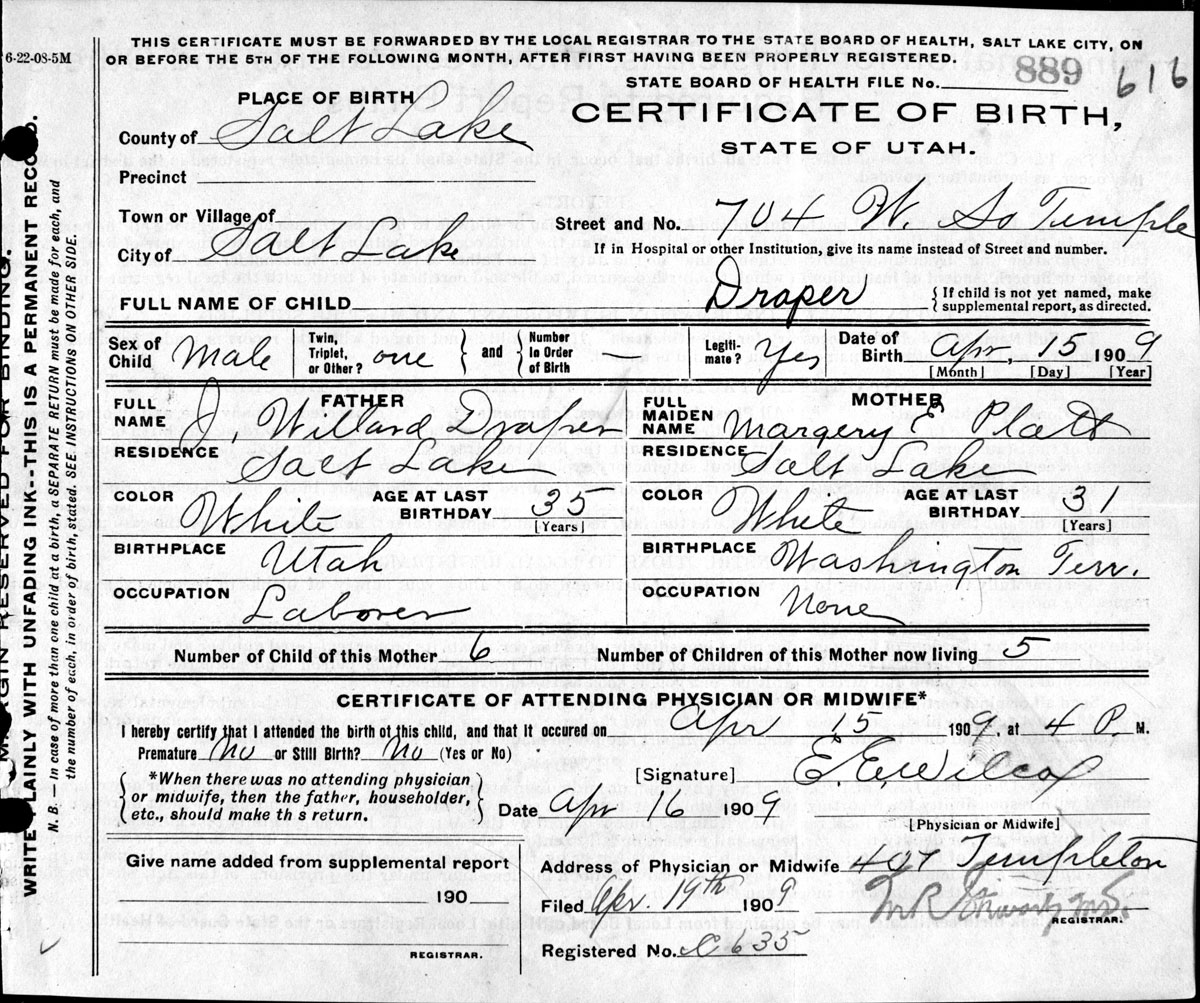 THIS CERTIFICATE MUST BE FORWARDED BY THE LOCAL REGISTRAR TO THE STATE BOARD OF HEALTH, SALT LAKE CITY, ON
OR BEFORE THE 5TH OF THE FOLLOWING MONTH, AFTER FIRST HAVING BEEN PROPERLY REGISTERED.
6-22-08-5M
STATE BOARD OF HEALTH FILE No. 889 616
PLACE OF BIRTH
CERTIFICATE OF BIRTH,
STATE OF UTAH.
County of Salt Lake
Precinct
Town or Village of
Street and No. 704 W. So Temple
City of Salt Lake
If in Hospital or other Institution, give its name instead of Street and number.
FULL NAME OF CHILD Draper
{If child is not yet named, make
supplemental report, as directed.
Sex of Child Male
Twin, Triplet, or Other? one } and { Number in Order of Birth
Legiti-mate? Yes
Date of Birth Apr, 15 1909
[Month] [Day] [Year]
FATHER
FULL NAME J. Willard Draper
RESIDENCE Salt Lake
COLOR White
AGE AT LAST BIRTHDAY 35
[Years]
BIRTHPLACE Utah
OCCUPATION Laborer
MOTHER
FULL MAIDEN NAME Margery E Platt
RESIDENCE Salt Lake
COLOR White
AGE AT LAST BIRTHDAY 31
[Years]
BIRTHPLACE Washington Terr.
OCCUPATION None
Number of Child of this Mother 6 Number of Children of this Mother now living 5
CERTIFICATE OF ATTENDING PHYSICIAN OR MIDWIFE*
I hereby certify that I attended the birth of this child, and that it occured on Apr 15 1909, at 4 P. M.
Premature No or Still Birth? No (Yes or No)
*When there was no attending physician
or midwife, then the father, householder,
etc., should make th s return.
[Signature] E E Wilcox
Date Apr 16 1909
[Physician or Midwife]
Give name added from supplemental report
190
REGISTRAR.
Address of Physician or Midwife 407 Templeton
Filed Apr. 19th 1909
REGISTRAR.
Registered No. C 635
MARGIN RESERVED FOR BINDING.
WRITE PLAINLY WITH UNFADING INK--THIS IS A PERMANENT RECORD.
N. B.—In case of more than one child at birth, a SEPARATE RETURN must be made for each, and
the number of each, in order of birth, stated. SEE INSTRUCTIONS ON OTHER SIDE.